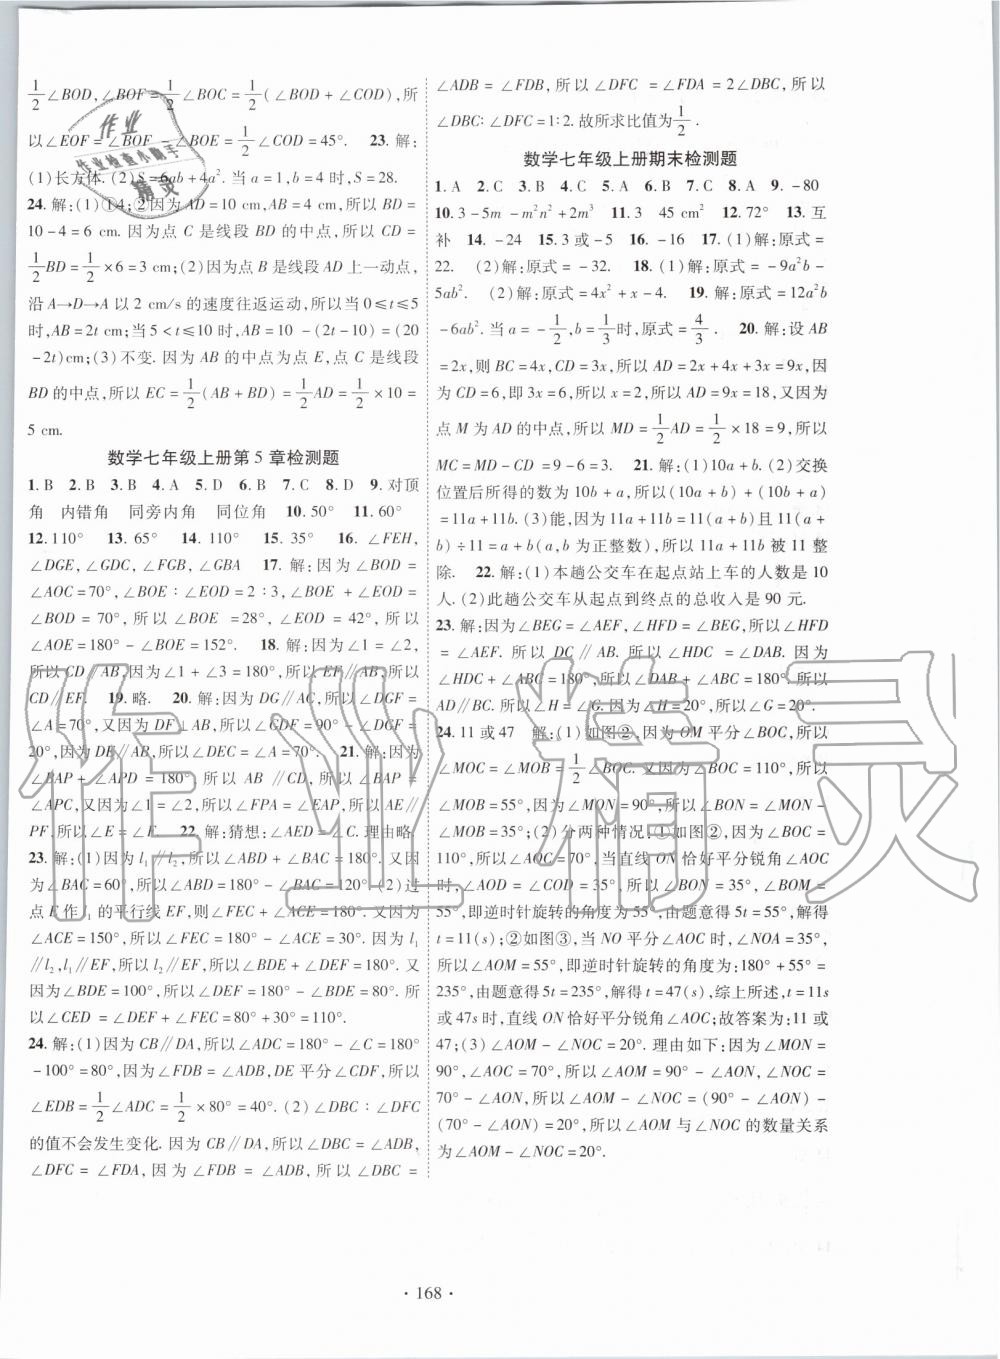 1/2∠BOD,∠BOF=1/2∠BOC=1/2(∠BOD+∠COD),所
以∠EOF=∠BOF-∠BOE=1/2∠COD=45°. 23. 解:
(1)长方体. (2)S=6ab+4a². 当a=1,b=4时,S=28.
24. 解:(1)①4;②因为AD=10 cm,AB=4 cm,所以BD=
10-4=6 cm. 因为点C是线段BD的中点,所以CD=
1/2BD=1/2×6=3 cm;(2)因为点B是线段AD上一动点,
沿A→D→A以2 cm/s的速度往返运动,所以当0≤t≤5
时,AB=2t cm;当5<t≤10时,AB=10-(2t-10)=(20
-2t)cm;(3)不变. 因为AB的中点为点E,点C是线段
BD的中点,所以EC=1/2(AB+BD)=1/2AD=1/2×10=
5 cm.
数学七年级上册第5章检测题
1. B 2. B 3. B 4. A 5. D 6. B 7. C 8. D 9. 对顶
角 内错角 同旁内角 同位角 10. 50° 11. 60°
12. 110° 13. 65° 14. 110° 15. 35° 16. ∠FEH,
∠DGE,∠GDC,∠FGB,∠GBA 17. 解:因为∠BOD=
∠AOC=70°,∠BOE∶∠EOD=2∶3,∠BOE+∠EOD=
∠BOD=70°,所以∠BOE=28°,∠EOD=42°,所以
∠AOE=180°-∠BOE=152°. 18. 解:因为∠1=∠2,
所以CD∥AB,因为∠1+∠3=180°,所以EF∥AB,所以
CD∥EF. 19. 略. 20. 解:因为DG∥AC,所以∠DGF=
∠A=70°,又因为DF⊥AB,所以∠GDF=90°-∠DGF=
20°,因为DE∥AB,所以∠DEC=∠A=70°. 21. 解:因为
∠BAP+∠APD=180°,所以AB∥CD,所以∠BAP=
∠APC,又因为∠1=∠2,所以∠FPA=∠EAP,所以AE∥
PF,所以∠E=∠F. 22. 解:猜想:∠AED=∠C. 理由略.
23. 解:(1)因为l₁∥l₂,所以∠ABD+∠BAC=180°. 又因
为∠BAC=60°,所以∠ABD=180°-∠BAC=120°. (2)过
点E作l₁的平行线EF,则∠FEC+∠ACE=180°. 又因为
∠ACE=150°,所以∠FEC=180°-∠ACE=30°. 因为l₁
∥l₂,l₁∥EF,所以l₂∥EF,所以∠BDE+∠DEF=180°. 又
因为∠BDE=100°,所以∠DEF=180°-∠BDE=80°. 所
以∠CED=∠DEF+∠FEC=80°+30°=110°.
24. 解:(1)因为CB∥DA,所以∠ADC=180°-∠C=180°
-100°=80°,因为∠FDB=∠ADB,DE平分∠CDF,所以
∠EDB=1/2∠ADC=1/2×80°=40°. (2)∠DBC∶∠DFC
的值不会发生变化. 因为CB∥DA,所以∠DBC=∠ADB,
∠DFC=∠FDA,因为∠FDB=∠ADB,所以∠DBC=
∠ADB=∠FDB,所以∠DFC=∠FDA=2∠DBC,所以
∠DBC∶∠DFC=1∶2. 故所求比值为1/2.
数学七年级上册期末检测题
1. A 2. C 3. B 4. C 5. A 6. B 7. C 8. A 9. -80
10. 3-5m-m²n²+2m³ 11. 3 45 cm² 12. 72° 13. 互
补 14. -24 15. 3或-5 16. -16 17. (1)解:原式=
22. (2)解:原式=-32. 18. (1)解:原式=-9a²b-
5ab². (2)解:原式=4x²+x-4. 19. 解:原式=12a²b
-6ab². 当a=-1/2,b=1/3时,原式=4/3. 20. 解:设AB
=2x,则BC=4x,CD=3x,所以AD=2x+4x+3x=9x,因
为CD=6,即3x=6,所以x=2,所以AD=9x=18,又因为
点M为AD的中点,所以MD=1/2AD=1/2×18=9,所以
MC=MD-CD=9-6=3. 21. 解:(1)10a+b. (2)交换
位置后所得的数为10b+a,所以(10a+b)+(10b+a)
=11a+11b. (3)能,因为11a+11b=11(a+b)且11(a+
b)÷11=a+b(a,b为正整数),所以11a+11b被11整
除. 22. 解:(1)本趟公交车在起点站上车的人数是10
人. (2)此趟公交车从起点到终点的总收入是90元.
23. 解:因为∠BEG=∠AEF,∠HFD=∠BEG,所以∠HFD
=∠AEF. 所以DC∥AB. 所以∠HDC=∠DAB. 因为
∠HDC+∠ABC=180°,所以∠DAB+∠ABC=180°. 所以
AD∥BC. 所以∠H=∠G. 因为∠H=20°,所以∠G=20°.
24. 11或47 解:(1)如图②,因为OM平分∠BOC,所以
∠MOC=∠MOB=1/2∠BOC. 又因为∠BOC=110°,所以
∠MOB=55°,因为∠MON=90°,所以∠BON=∠MON-
∠MOB=35°;(2)分两种情况:①如图②,因为∠BOC=
110°,所以∠AOC=70°,当直线ON恰好平分锐角∠AOC
时;∠AOD=∠COD=35°,所以∠BON=35°,∠BOM=
55°,即逆时针旋转的角度为55°,由题意得5t=55°,解得
t=11(s);②如图③,当NO平分∠AOC时,∠NOA=35°,
所以∠AOM=55°,即逆时针旋转的角度为:180°+55°=
235°,由题意得5t=235°,解得t=47(s),综上所述,t=11s
或47s时,直线ON恰好平分锐角∠AOC;故答案为:11或
47;(3)∠AOM-∠NOC=20°. 理由如下:因为∠MON=
90°,∠AOC=70°,所以∠AOM=90°-∠AON,∠NOC=
70°-∠AON,所以∠AOM-∠NOC=(90°-∠AON)-
(70°-∠AON)=20°,所以∠AOM与∠NOC的数量关系
为∠AOM-∠NOC=20°.
· 168 ·
作业
作业检查小助手
精灵
作业精灵